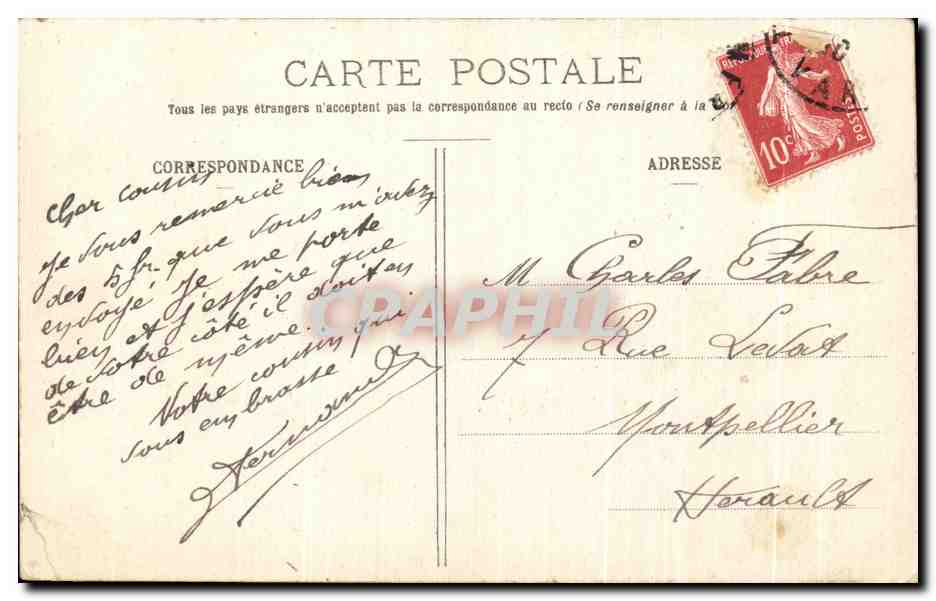 CARTE POSTALE
Tous les pays étrangers n'acceptent pas la correspondance au recto (Se renseigner à la
CORRESPONDANCE
Cher cousin
Je vous remercie bien
des 5 fr. que vous m'avez
envoyé. Je me porte
bien et j'espère que
de votre côté il doit en
être de même.
Votre cousin qui
vous embrasse
Fernand
ADRESSE
M Charles Fabre
7 Rue Levat
Montpellier
Herault
REPUBLIQUE FRA
10c
POSTES
VAR
CPAPHIL